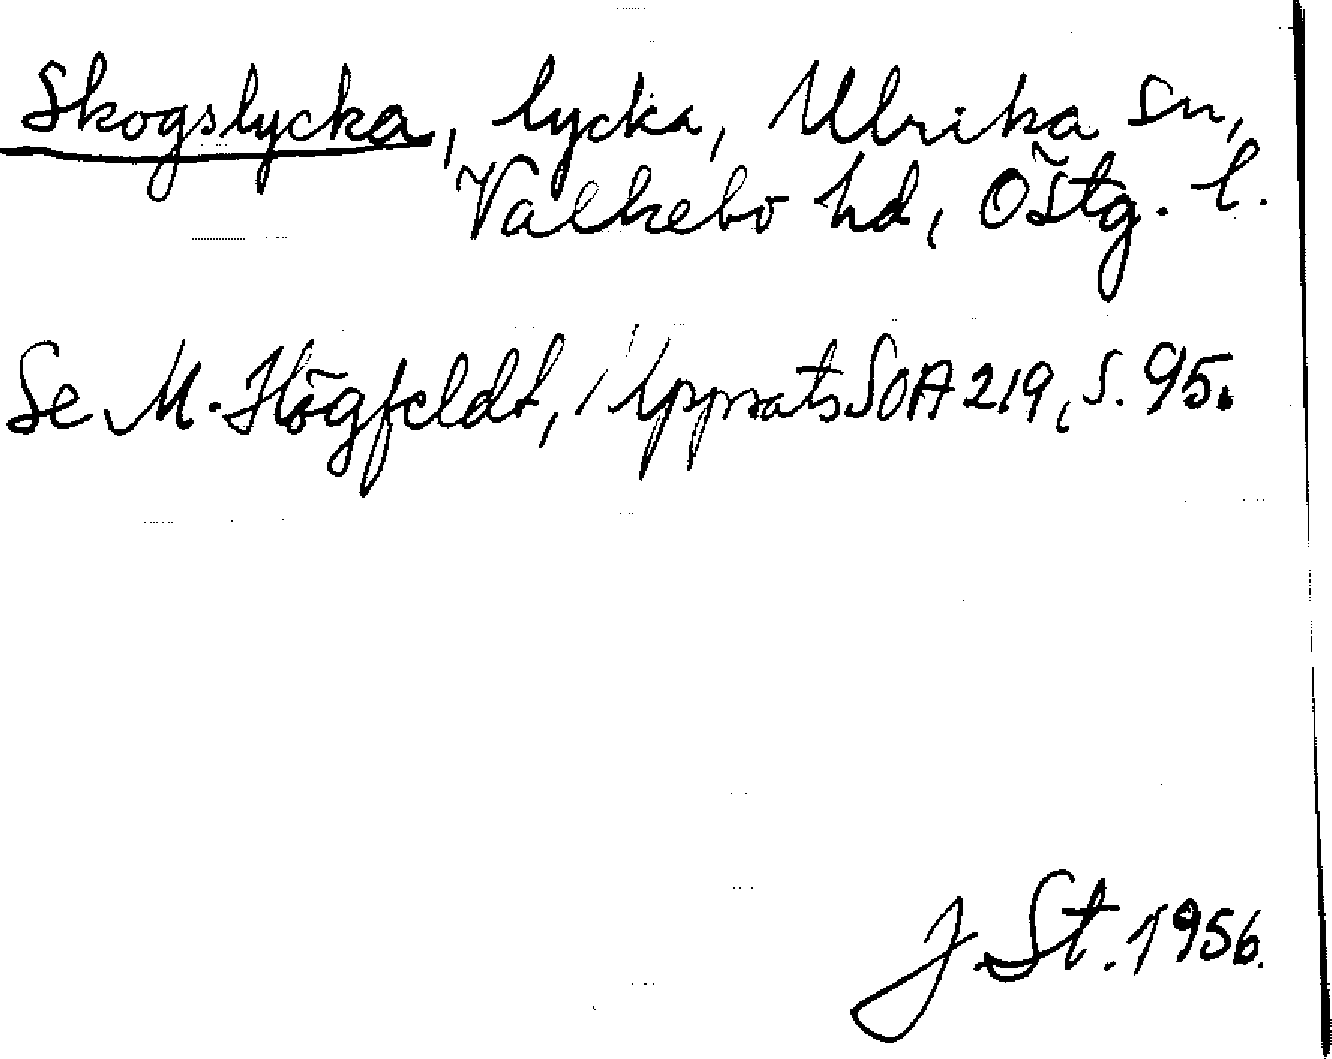 Skogslycka, lycka, Ulrika sn,
Valkebo hd, Östg. l.
Se M. Högfeldt, i Uppsats SOA 219, s. 95.
J. St. 1956.